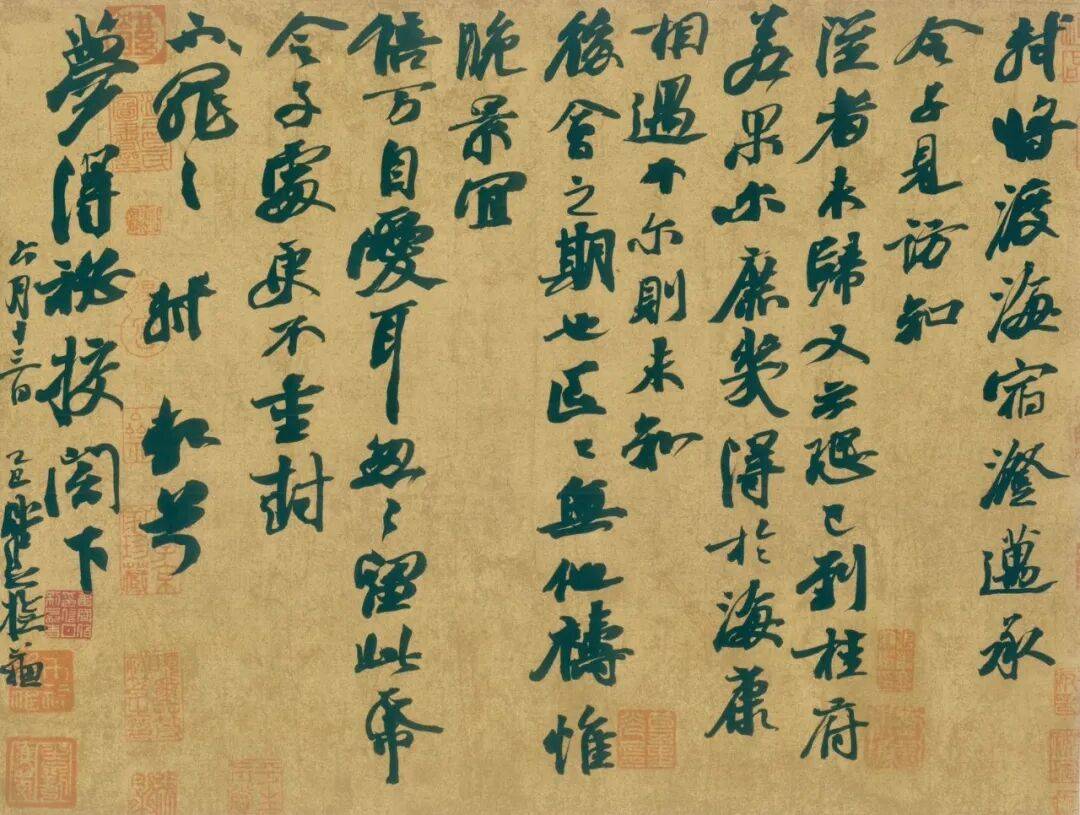 軾將渡海宿澄邁承
令子見訪知
從者未歸又云恐已到桂府
若果尔庶幾得於海康
相遇不尔則未知
後會之期也區々無他禱惟
晚景宜
倍万自愛耳怱々留此帋
令子處更不重封
不罪々 軾 頓首
夢得祕校閣下
六月十三日 乙巳